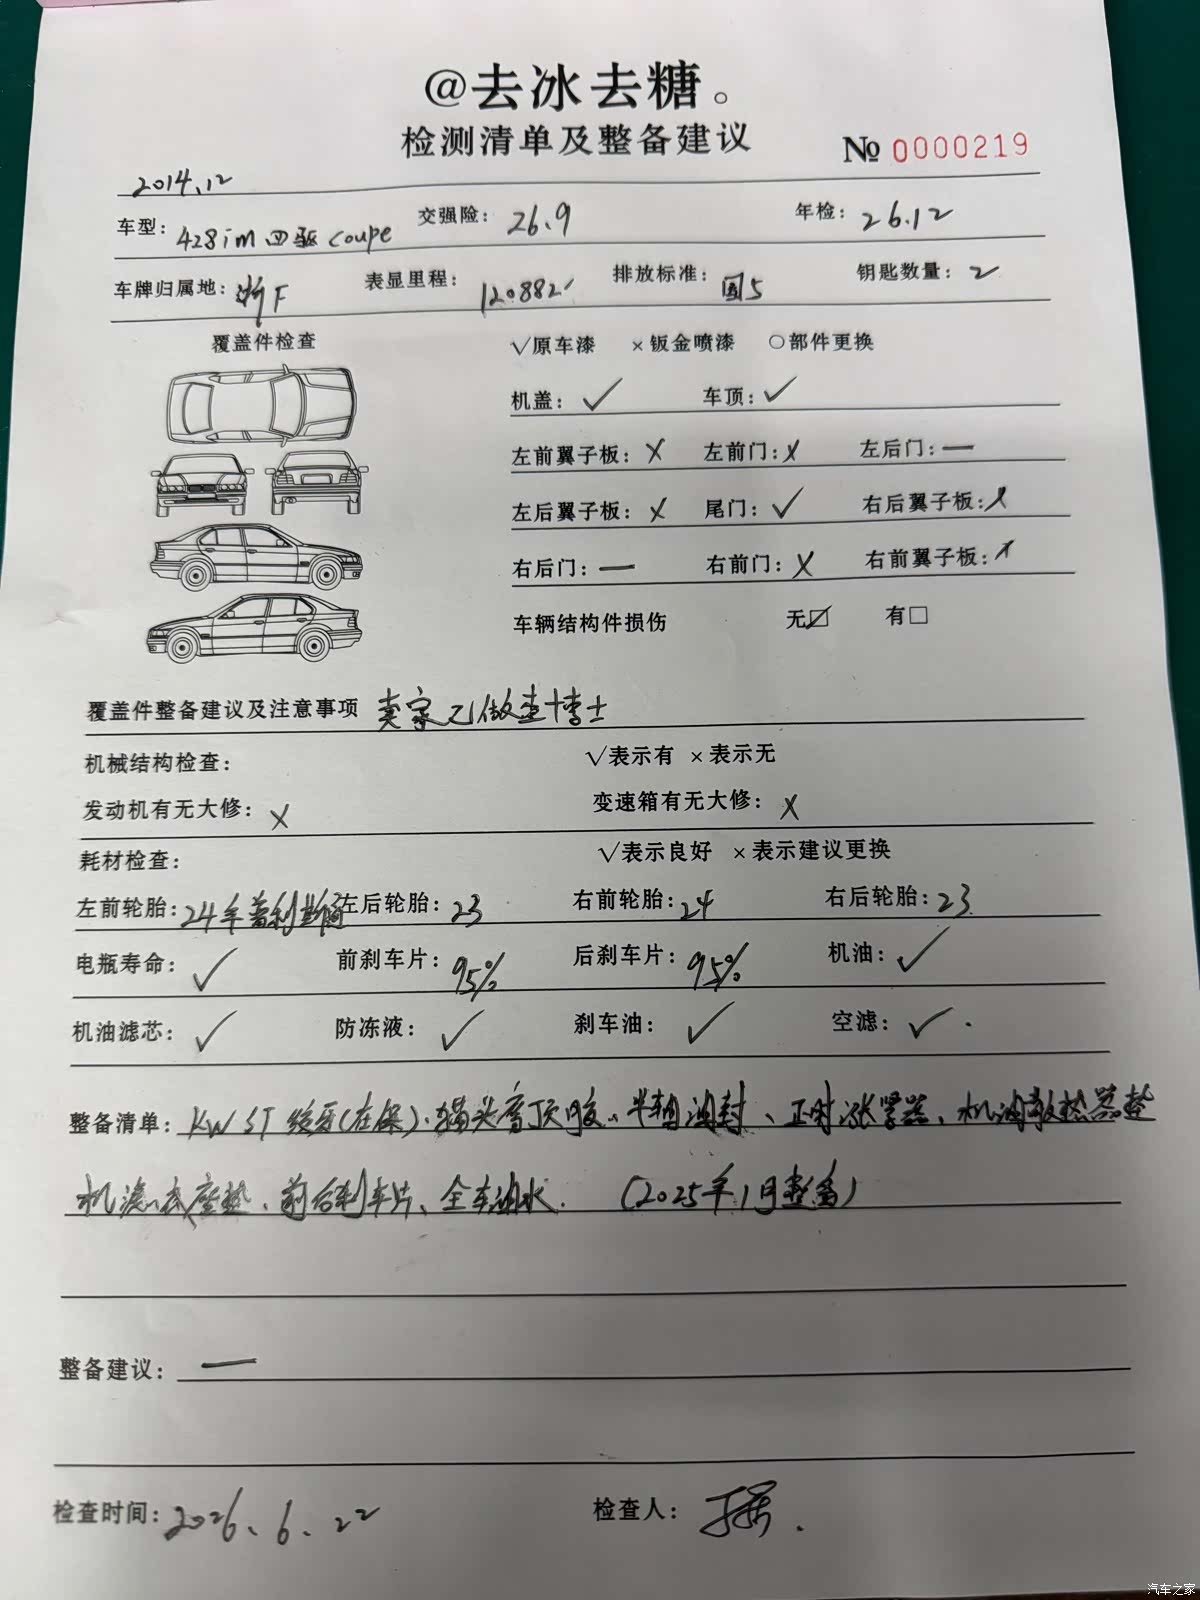 @去冰去糖。
检测清单及整备建议
№ 0000219
2014.12
车型: 428im四驱coupe 交强险: 26.9 年检: 26.12
车牌归属地: 浙F 表显里程: 120882 排放标准: 国5 钥匙数量: 2
覆盖件检查 √原车漆 ×钣金喷漆 ○部件更换
机盖: √ 车顶: √
左前翼子板: × 左前门: × 左后门: —
左后翼子板: × 尾门: √ 右后翼子板: ×
右后门: — 右前门: × 右前翼子板: ×
车辆结构件损伤 无☑ 有□
覆盖件整备建议及注意事项 卖家已做查博士
机械结构检查: √表示有 ×表示无
发动机有无大修: × 变速箱有无大修: ×
耗材检查: √表示良好 ×表示建议更换
左前轮胎: 24年普利斯通 左后轮胎: 23 右前轮胎: 24 右后轮胎: 23
电瓶寿命: √ 前刹车片: 95% 后刹车片: 95% 机油: √
机油滤芯: √ 防冻液: √ 刹车油: √ 空滤: √.
整备清单: KW ST 绞牙(在保)、猫头鹰顶胶、半轴油封、正时涨紧器、机油散热器垫
机滤底座垫、前后刹车片、全车油水. (2025年1月整备)
整备建议: —
检查时间: 2026.6.22 检查人:
汽车之家